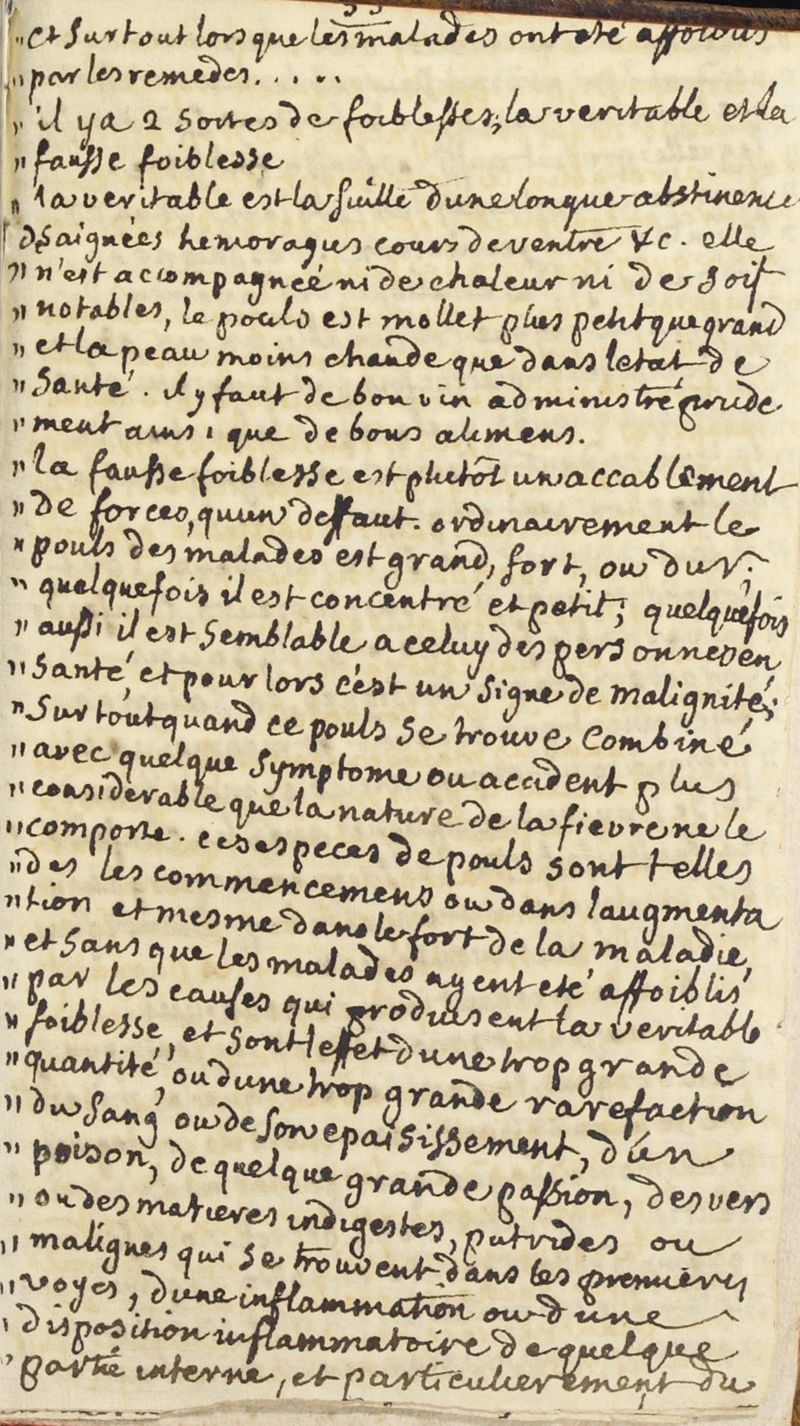 " et surtout lors que les malades ont eté affoiblis
" par les remedes.....
" il y a 2 sortes de foiblesses, la veritable et la
" fausse foiblesse
" la veritable est la suitte dune longue abstinence
" saignées hemoragies cours de ventre &c. elle
" n'est accompagnéé ni de chaleur ni de soif
" notables, le pouls est mollet plus petit que grand
" et la peau moins chaude que dans letat de
" santé. il y faut de bon vin administré prude
" ment ainsi que de bons alimens.
" la fausse foiblesse est plutôt un accablement
" de forces, quun deffaut. ordinairement le
" pouls des malades est grand, fort, ou dur;
" quelquefois il est concentré et petit; quelquefois
" aussi il est semblable a celuy des personnes en
" santé, et pour lors c'est un signe de malignité;
" surtout quand ce pouls se trouve combiné
" avec quelque symptome ou accident plus
" considerable que la nature de la fievre ne le
" comporte. ces especes de pouls sont telles
" des les commencemens ou dans laugmenta
" tion et mesme dans le fort de la maladie,
" et sans que les malades ayent eté affoiblis
" par les causes qui produisent la veritable
" foiblesse, et sont leffet dune trop grande
" quantité, ou dune trop grande rarefaction
" du sang ou de son epaisissement, d'un
" poison, de quelque grande passion, des vers
" ou des matieres indigestes, putrides ou
" malignes qui se trouvent dans les premieres
" voyes, dune inflammation ou dune
" disposition inflammatoire de quelque
" partie interne, et particulierement du